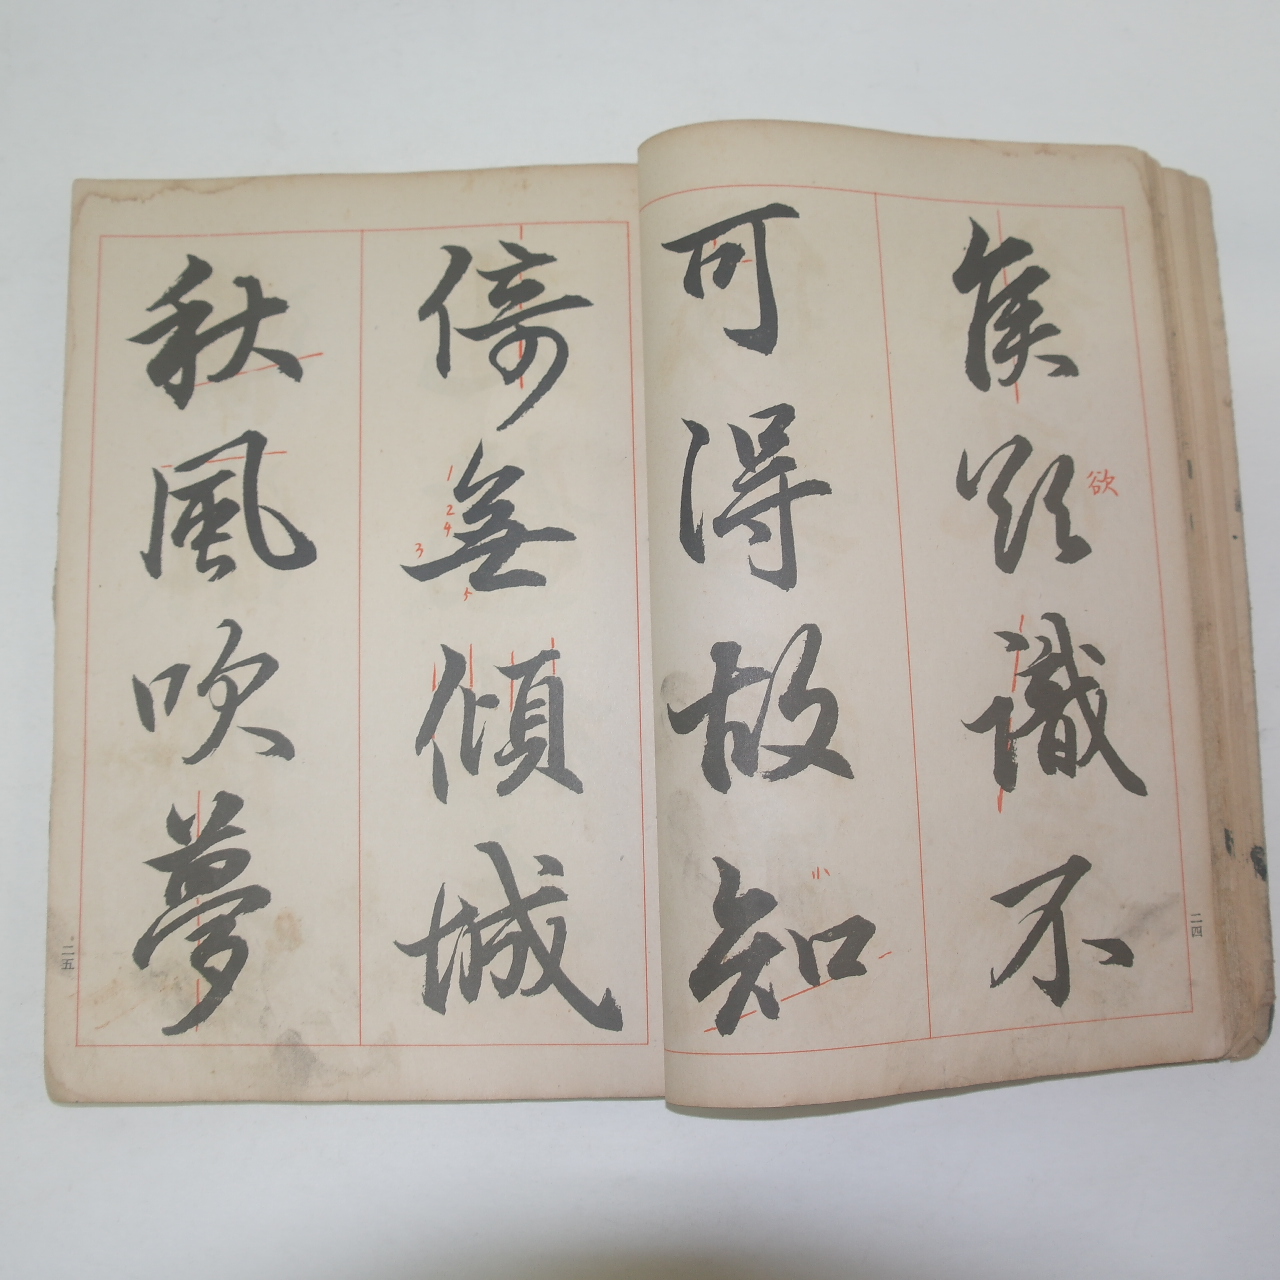 侯欲識不
欲
二四
可得故知
小
倚無傾城
1
2
4
3
5
秋風吹夢
二五